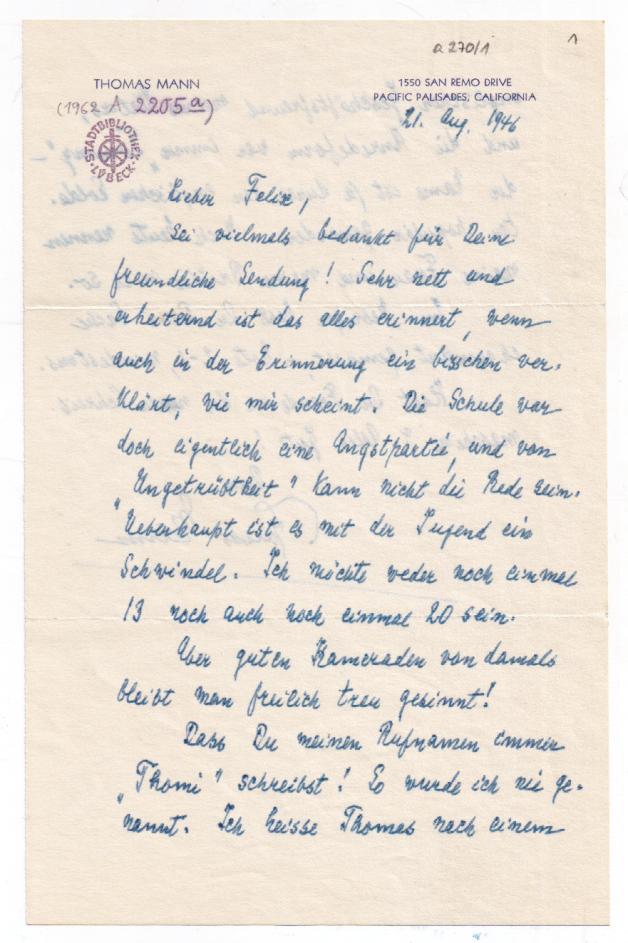 a 270/1
1
THOMAS MANN
1550 SAN REMO DRIVE
PACIFIC PALISADES, CALIFORNIA
(1962 A 2205a)
STADTBIBLIOTHEK LÜBECK
21. Aug. 1946
Lieber Felix,
Sei vielmals bedankt für Deine
freundliche Sendung! Sehr nett und
erheiternd ist das alles erinnert, wenn
auch in der Erinnerung ein bisschen ver-
klärt, wie mir scheint. Die Schule war
doch eigentlich eine Angstpartie, und von
„Ungetrübtheit" kann nicht die Rede sein.
Ueberhaupt ist es mit der Jugend ein
Schwindel. Ich möchte weder noch einmal
13 noch auch noch einmal 20 sein.
Aber guten Kameraden von damals
bleibt man freilich treu gesinnt!
Dass Du meinen Rufnamen immer
„Thomi" schreibst! So wurde ich nie ge-
nannt. Ich heisse Thomas nach einem